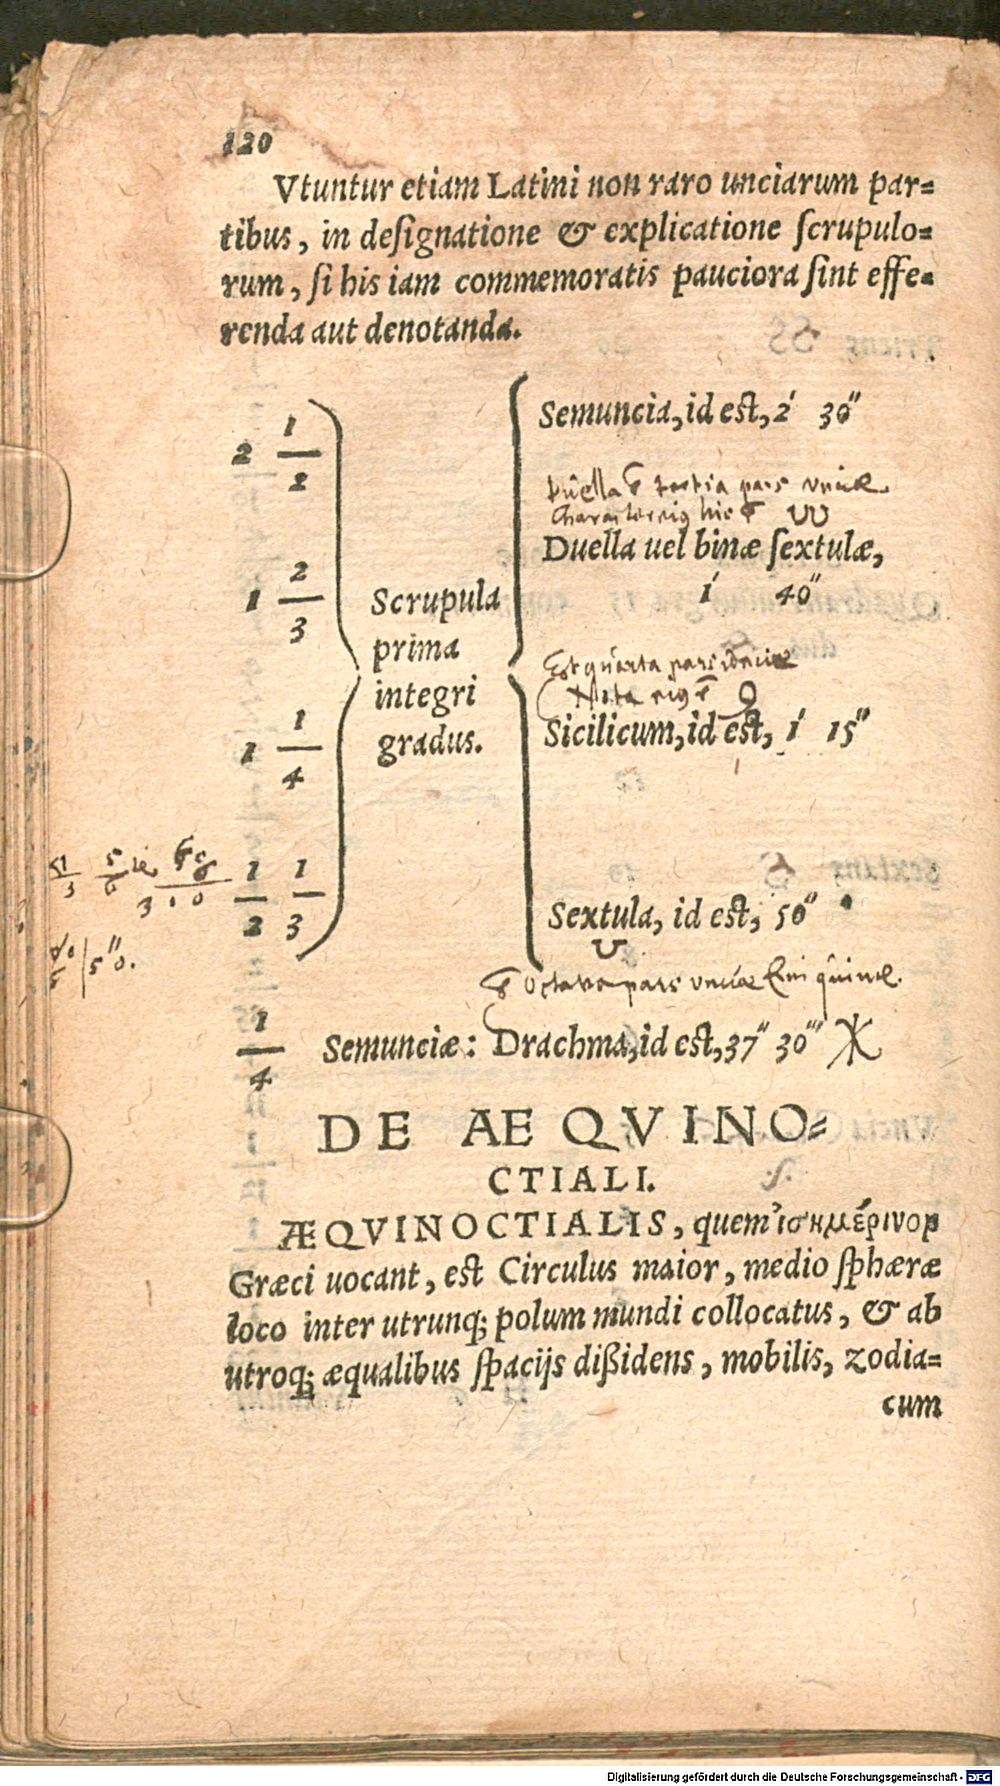 120
Vtuntur etiam Latini non raro unciarum par=
tibus, in deſignatione & explicatione ſcrupulo=
rum, ſi his iam commemoratis pauciora ſint effe=
renda aut denotanda.
2 1/2
Semuncia, id est, 2′ 30″
Duella est tertia pars unciæ
Character eius hic est UU
Duella uel binæ ſextulæ,
1 2/3
1′ 40″
Scrupula
prima
integri
gradus.
Est quarta pars unciæ
Nota eius est Ɔ
1 1/4
Sicilicum, id est, 1′ 15″
1/2 1/3
Sextula, id est, 50″
5″0.
octava pars unciæ
1/4 Semunciæ: Drachma, id est, 37″ 30‴
DE AEQVINO=
CTIALI.
ÆQVINOCTIALIS, quem ἰσημέρινον
Græci uocant, est Circulus maior, medio ſphæræ
loco inter utrunq; polum mundi collocatus, & ab
utroq; æqualibus ſpacijs dißidens, mobilis, zodia=
cum
Digitalisierung gefördert durch die Deutsche Forschungsgemeinschaft - DFG